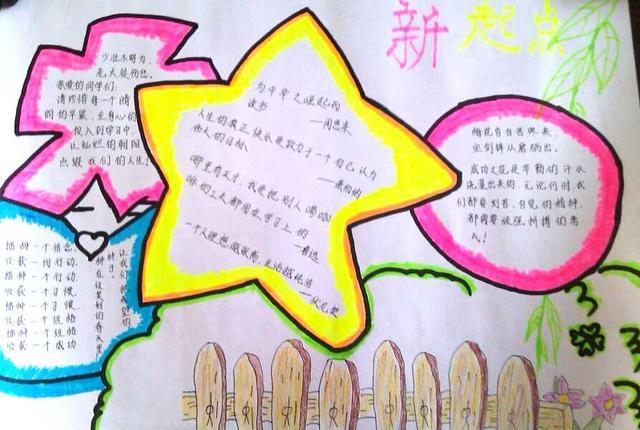 新起点
少壮不努力，
老大徒伤悲。
亲爱的同学们：
请珍惜每一个晴
朗的早晨，全身心的
投入到学习中，
让灿烂的朝阳
点缀我们的人生！
为中华之崛起而
读书 ——周恩来
人生的真正快乐是致力于一个自己认为
伟人的目标。
——萧伯纳
哪里有天才，我是把别人喝咖
啡的工夫都用在学习上的
——鲁迅
一个人理想越崇高，生活越纯洁
——伏尼契
梅花香自苦寒来，
宝剑锋从磨砺出。
成功之花是辛勤的汗水
浇灌出来的，无论何时，我
们都要刻苦、自觉的精神，
都需要顽强拼搏的勇
气！
播种一个信念，
收获一个行动，
播种一个行动，
收获一个习惯，
播种一个习惯，
收获一个性格
播种一个性格
收获一个成功
让我们
种子，
种在这美好的春天里